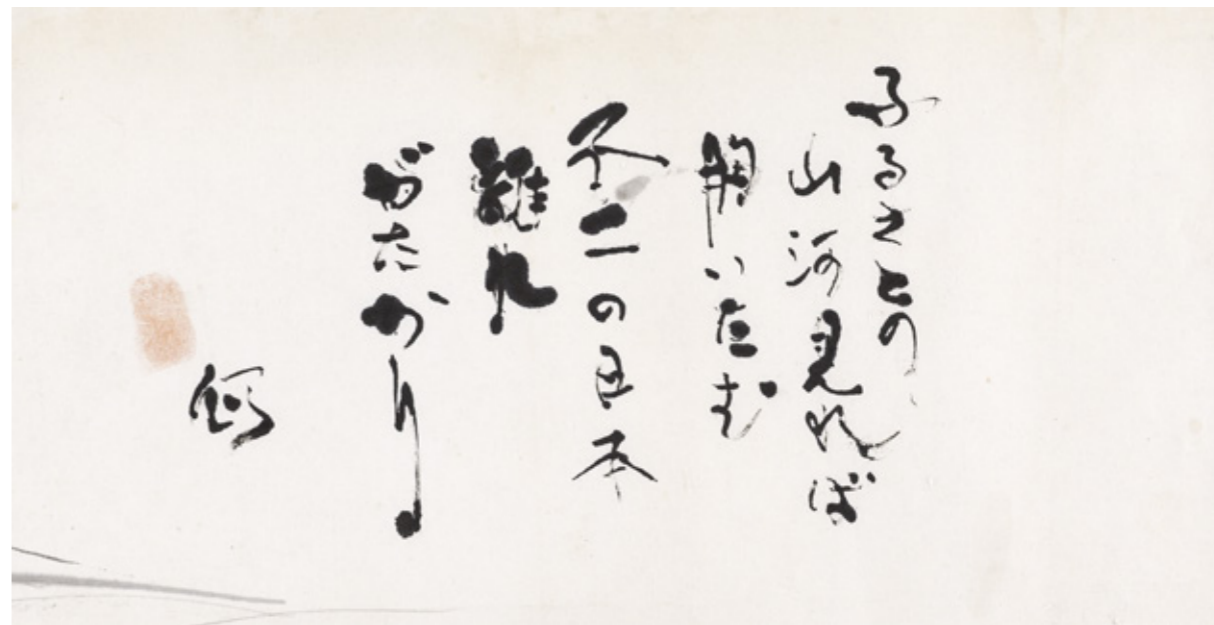 ふるさとの
山河見れば
胸いたむ
不二の日本
離れ
がたかり